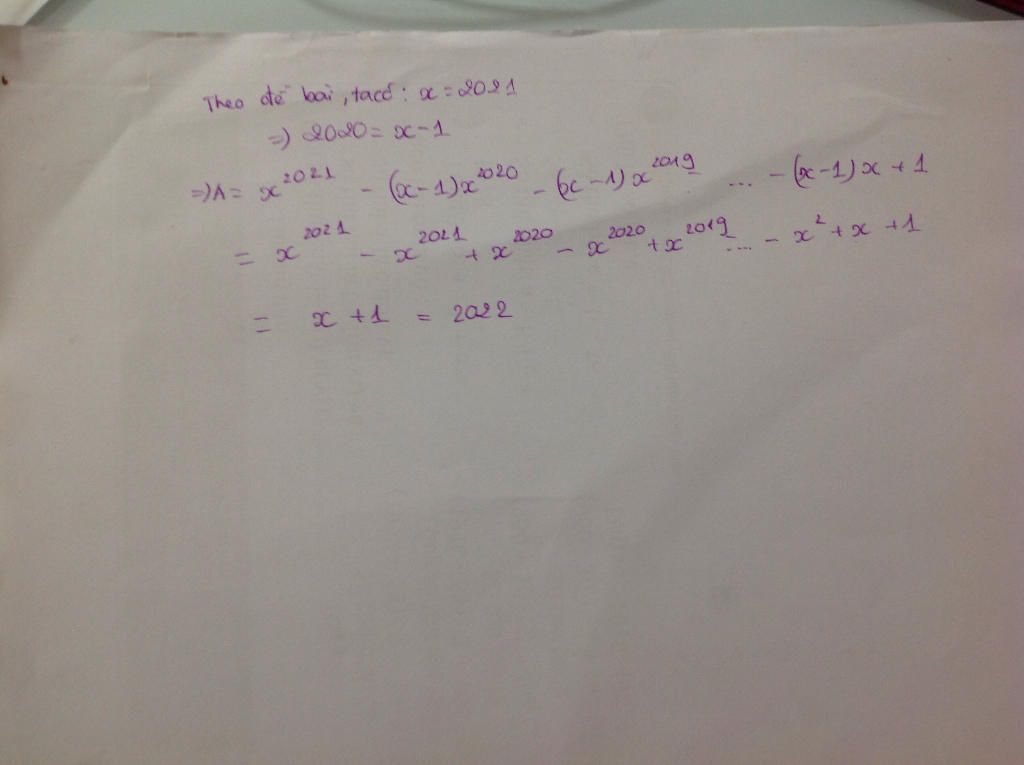 Theo đề bài, ta có: x = 2021
=) 2020 = x - 1
=) A = x^2021 - (x-1)x^2020 - (x-1)x^2019 - ... - (x-1)x + 1
= x^2021 - x^2021 + x^2020 - x^2020 + x^2019 - .... - x^2 + x + 1
= x + 1 = 2022